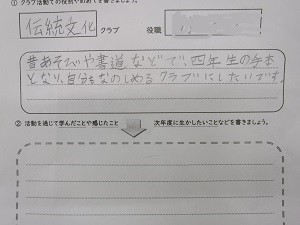 ① クラブ活動での役割やめあてを書きましょう。
伝統文化 クラブ 役職
昔あそびや書道などで、四年生の手本
となり、自分もたのしめるクラブにしたいです。
② 活動を通じて学んだことや感じたこと 次年度に生かしたいことなどを書きましょう。